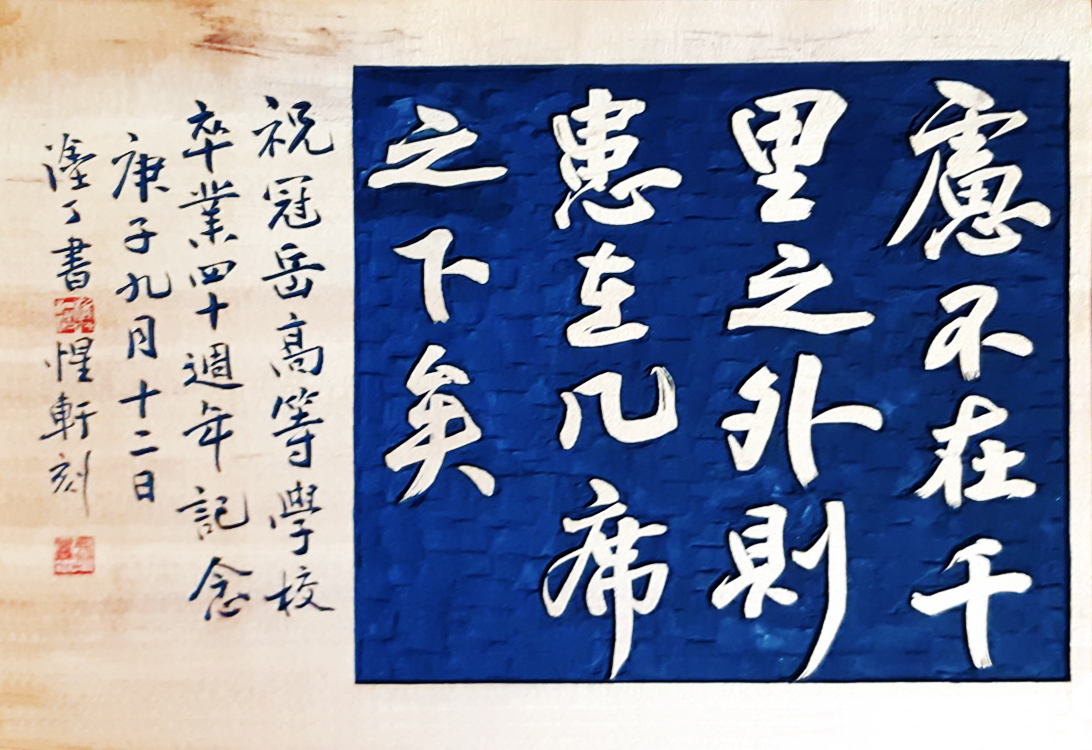 慮不在千
里之外則
患在几席
之下矣
祝冠岳高等學校
卒業四十週年記念
庚子九月十二日
丁書
惺軒刻